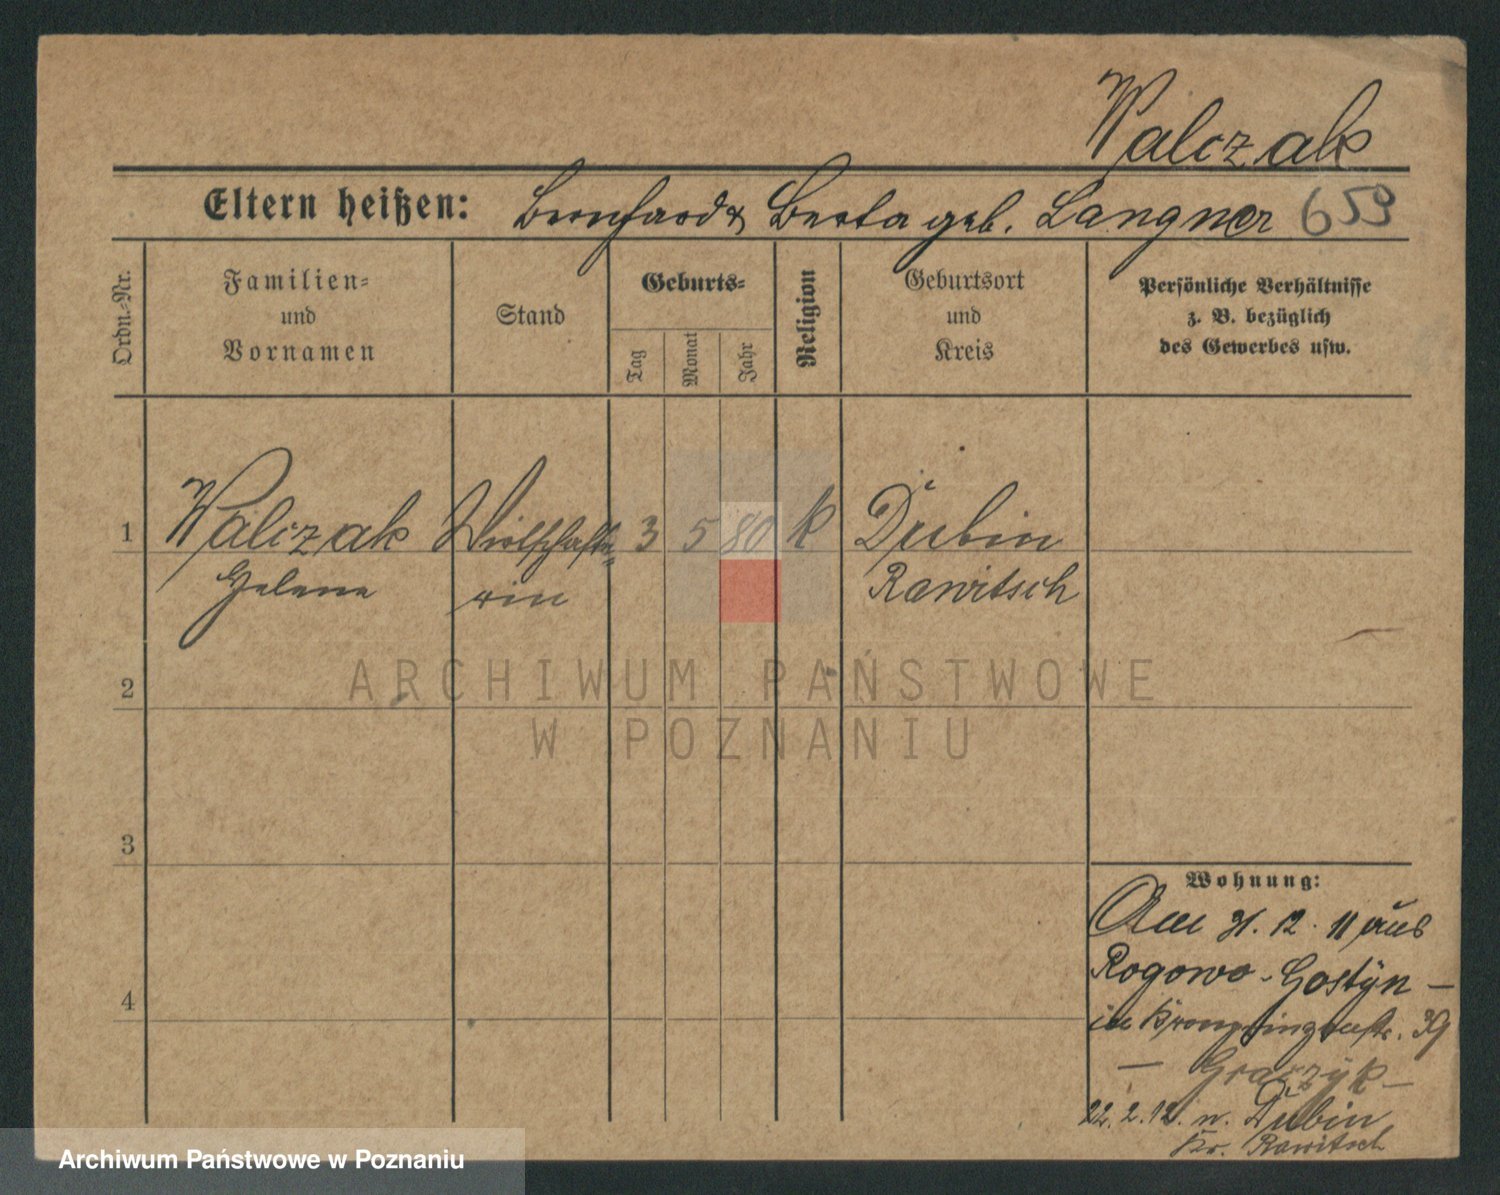 Walczak
Eltern heißen: Bernhard & Berta geb. Langner 659
Ordn.-Nr.
Familien-
und
Vornamen
Stand
Geburts-
Tag
Monat
Jahr
Religion
Geburtsort
und
Kreis
Persönliche Verhältnisse
z. B. bezüglich
des Gewerbes usw.
1 Walczak Wirtschafte- 3 5 80 k Dubin
Helene rin Rawitsch
ARCHIWUM PAŃSTWOWE
2
W POZNANIU
3
Wohnung:
Am 31. 12. 11 aus
Rogowo - Gostyn -
4
in Kronprinzenstr. 39
- Graczyk -
22. 2. 12. n. Dubin
Kr. Rawitsch
Archiwum Państwowe w Poznaniu